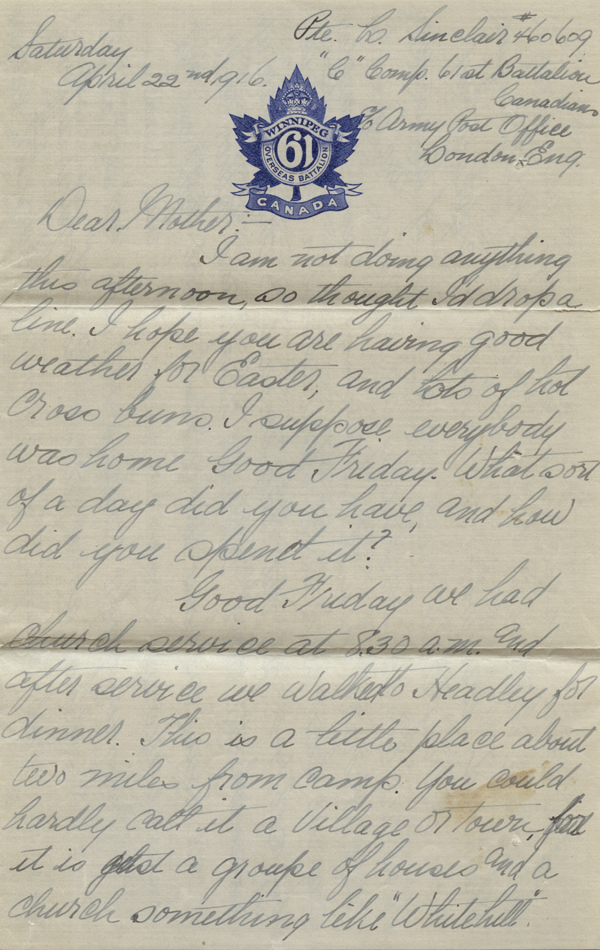 Pte. Co. Sinclair #460609
Saturday
"C" Comp. 61st Battalion
April 22nd, 1916.
Canadians
℅ Army Post Office
London, Eng.
WINNIPEG
61
OVERSEAS BATTALION
CANADA
Dear Mother:—
I am not doing anything
this afternoon, so thought I'd drop a
line. I hope you are having good
weather for Easter, and lots of hot
cross buns. I suppose everybody
was home Good Friday. What sort
of a day did you have, and how
did you spend it?
Good Friday we had
church service at 8.30 a.m. and
after service we walked to Headley for
dinner. This is a little place about
two miles from camp. You could
hardly call it a Village or town, for
it is just a groupe of houses and a
church something like "Whitehill".